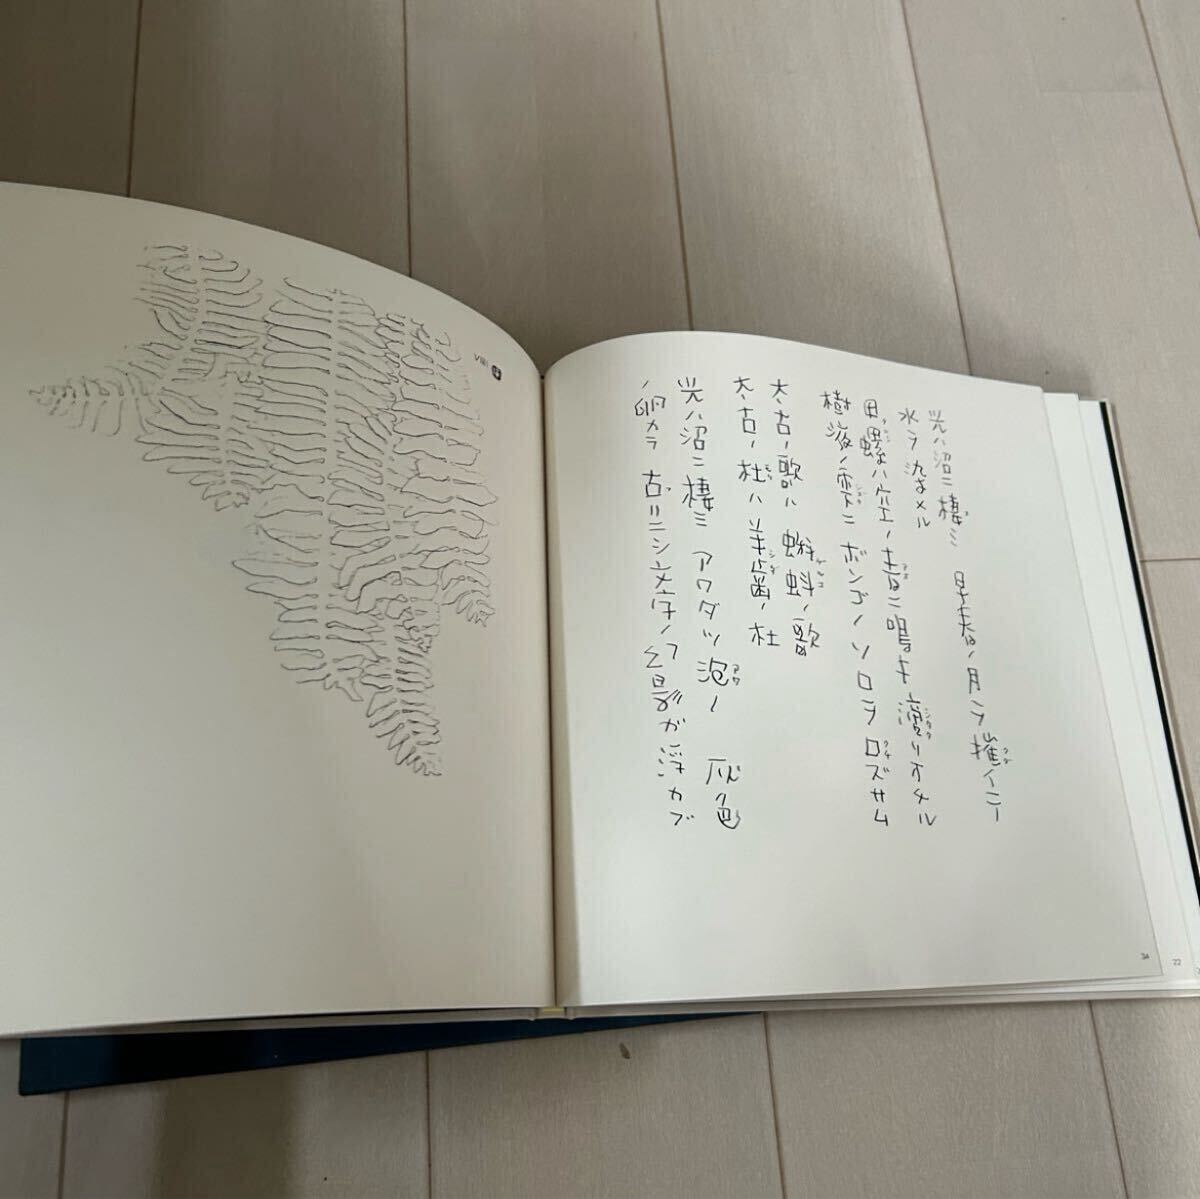 VIII
光ハ沼ニ棲ミ 早春ノ月ヲ擁イニー
水ヲ染メル
田螺ハ空ノ青ニ鳴キ 濡リオメル
樹液ノ雫ニ ボンゴノソロヲロズサム
太古ノ歌ハ 蝌蚪ノ歌
太古ノ杜ハ 羊歯ノ杜
光ハ沼ニ棲ミ アワダツ泡ノ 灰色
ノ卵カラ 古リニシ文字ノ幻影ガ浮カブ
34
22